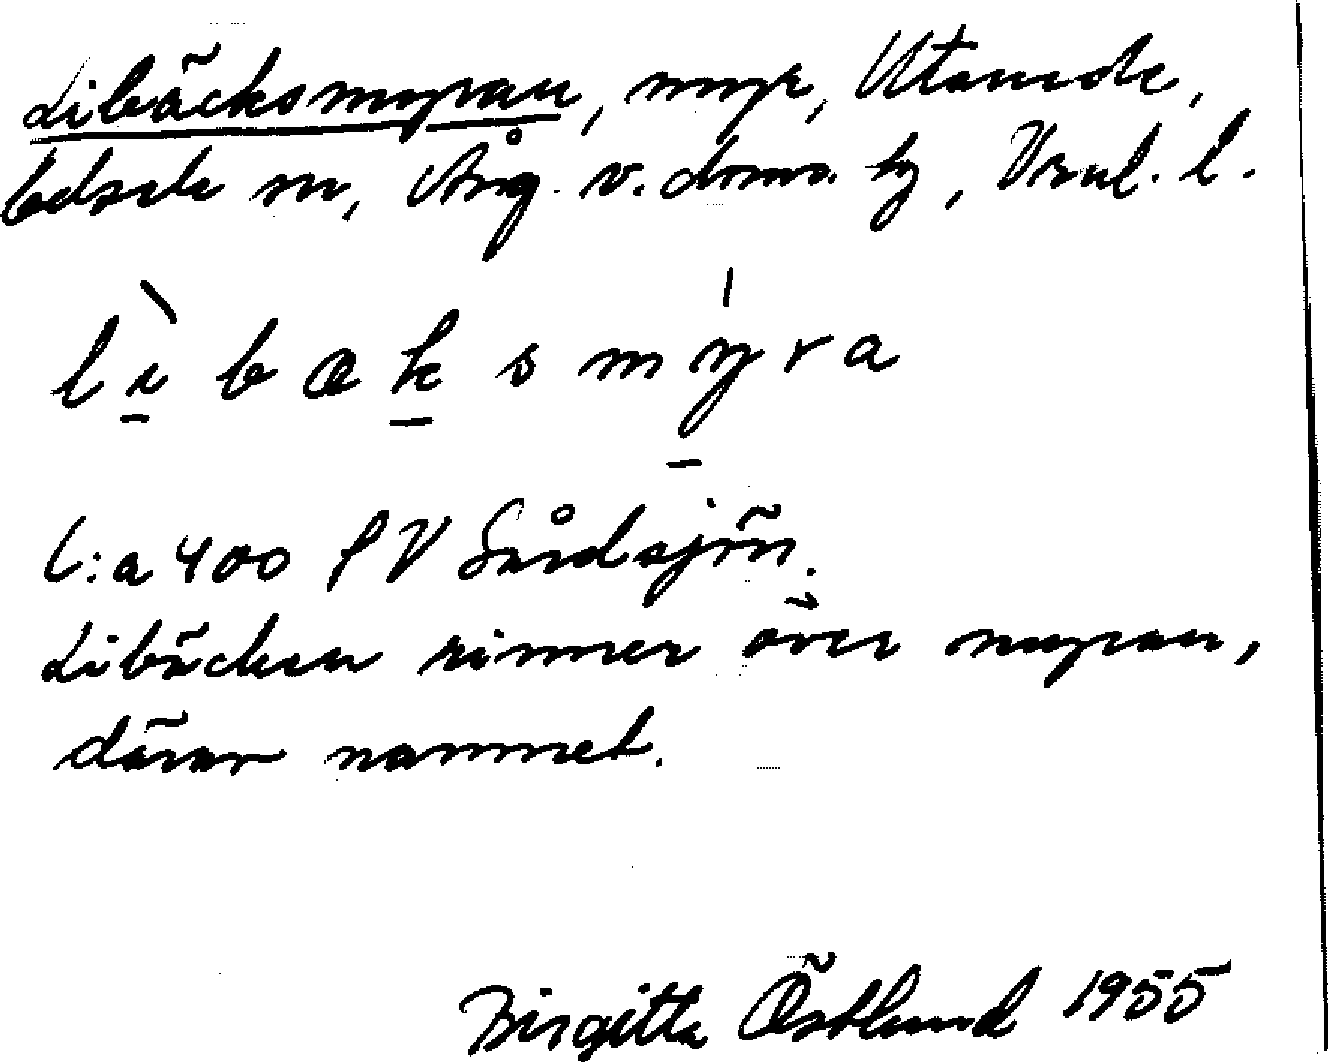 Libäcksmyran, myr, Utanede,
Edsele sn, Ång. v. doms. tg, Vnl. l.
lìbaksmýra
C:a 400 SV Lårdsjön.
Libäcken rinner över myran,
därav namnet.
Birgitta Östlund 1955